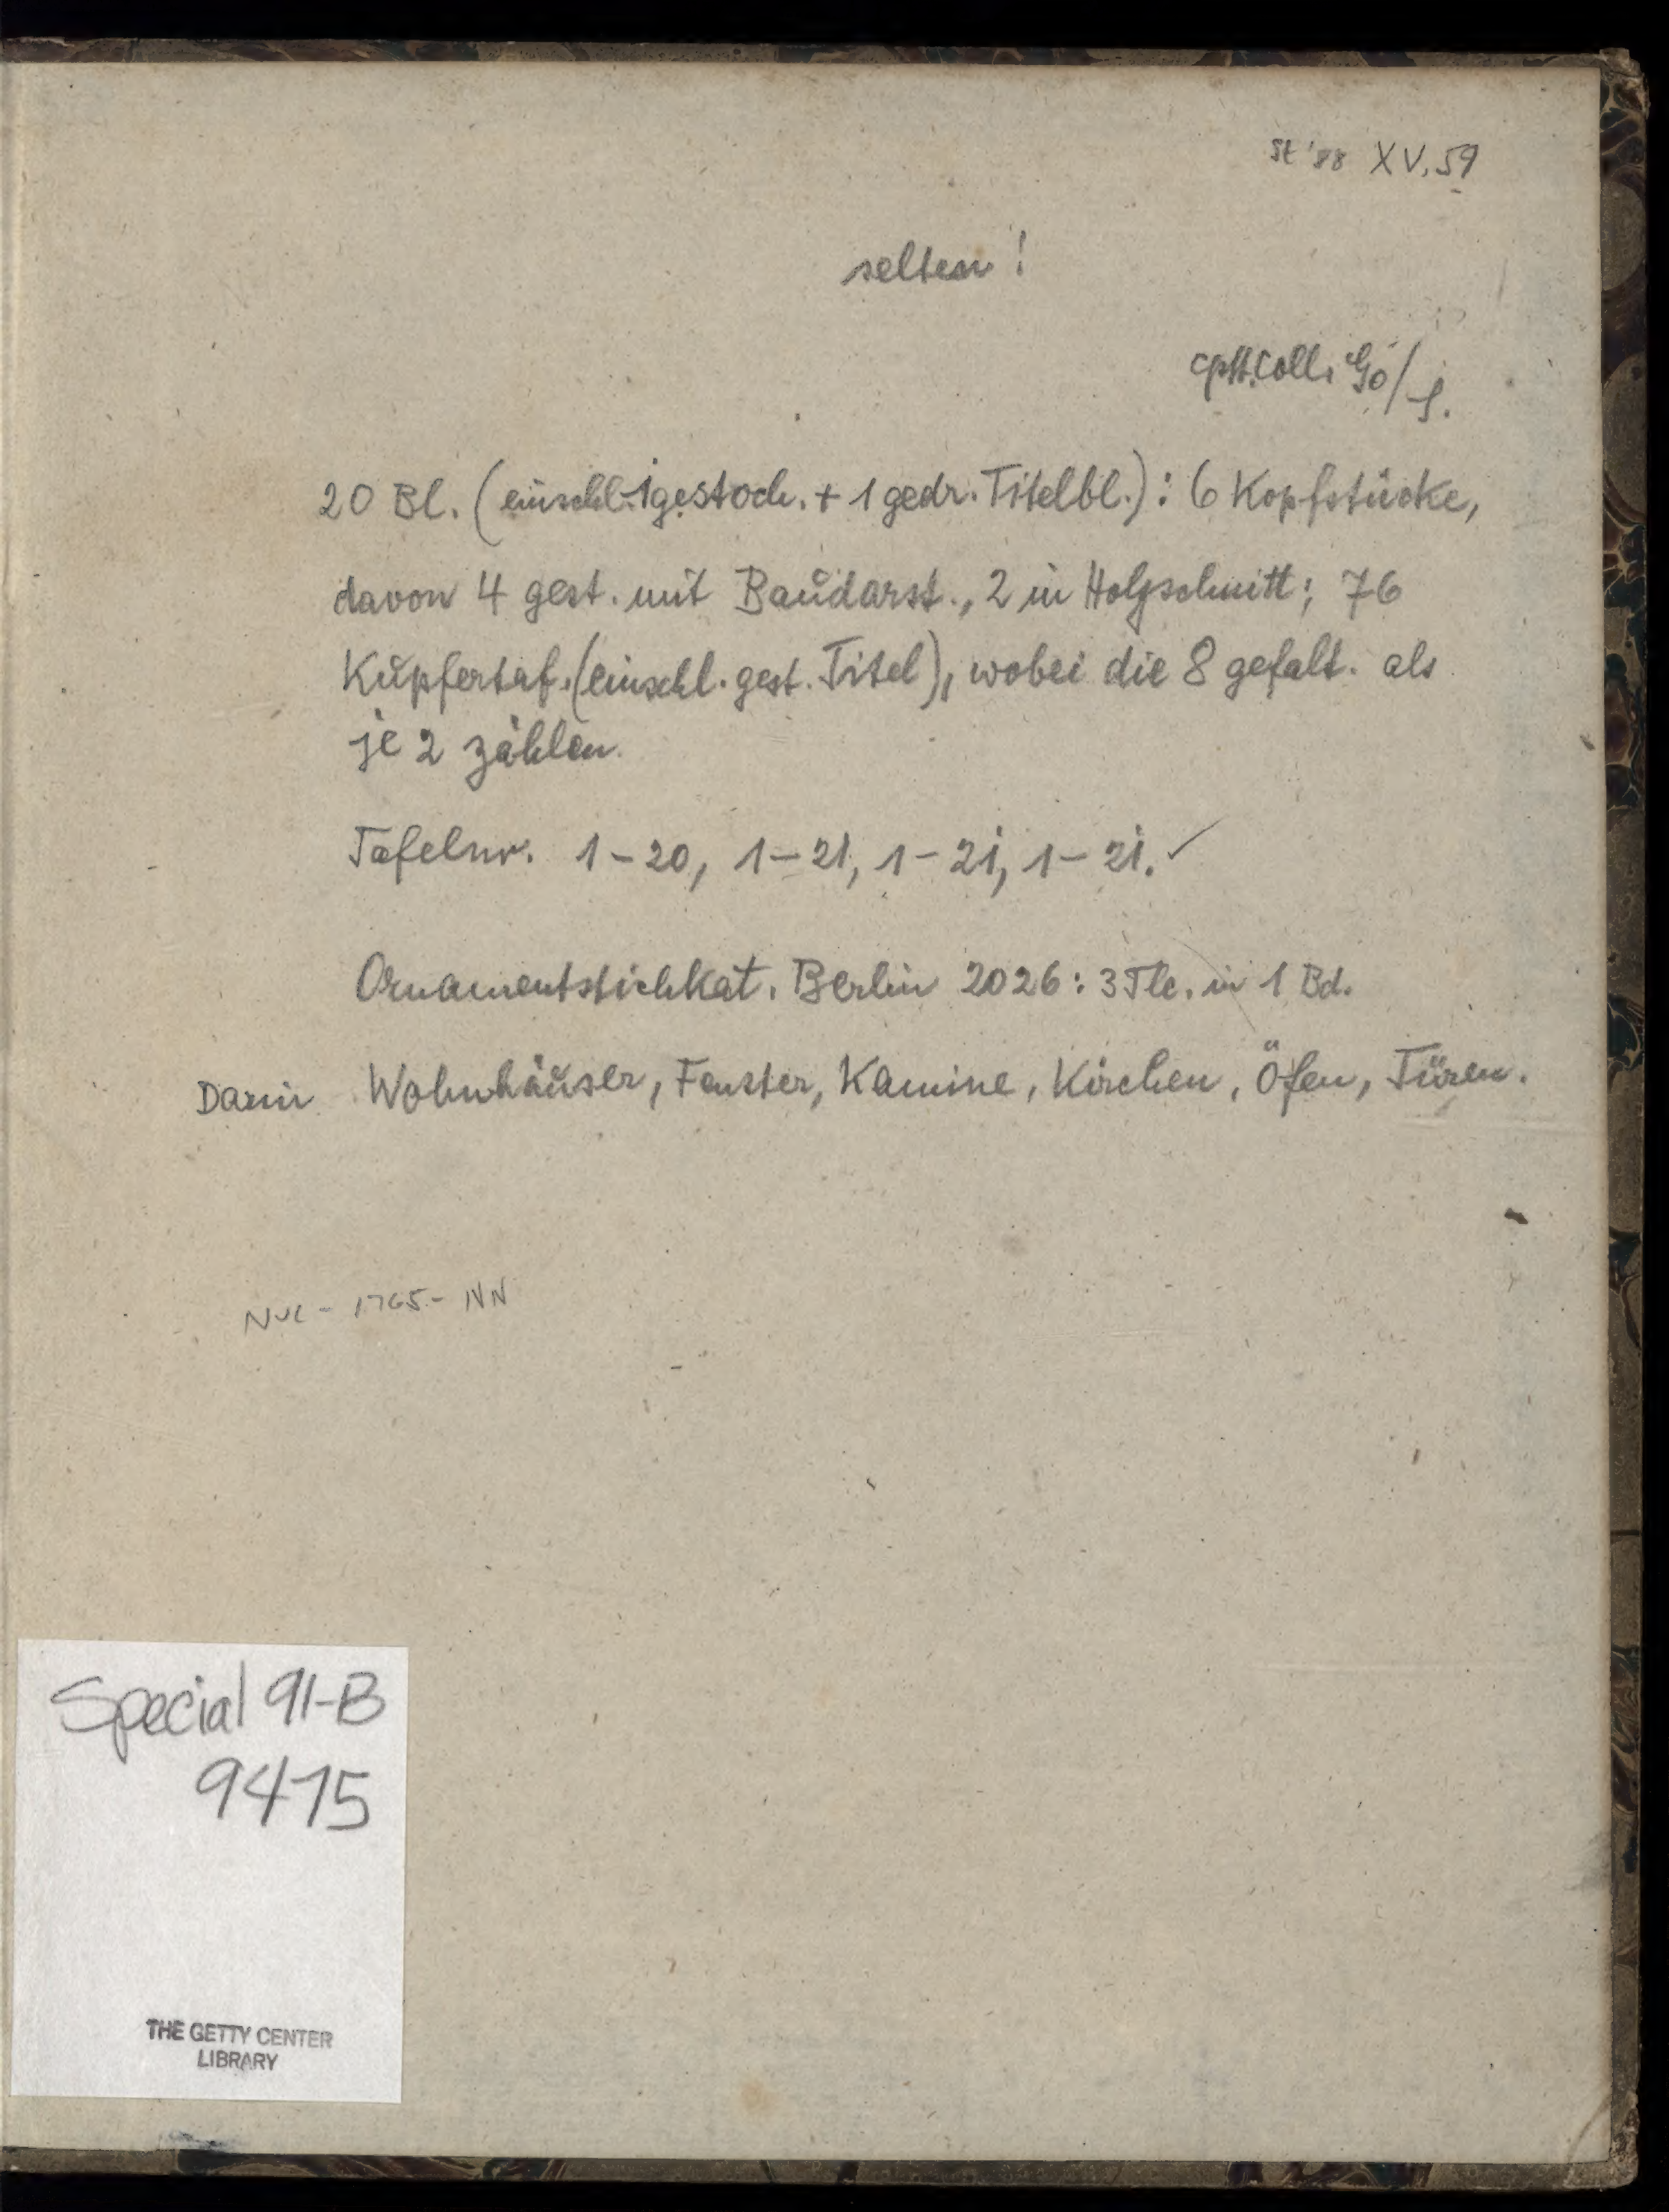 St '88 XV, 59
selten!
cplt. Coll.
20 Bl. (einschl. 1 gestoch. + 1 gedr. Titelbl.): 6 Kopfstücke,
davon 4 gest. mit Baudarst., 2 in Holzschnitt; 76
Kupfertaf. (einschl. gest. Titel), wobei die 8 gefalt. als
je 2 zählen.
Tafelnr. 1-20, 1-21, 1-21, 1-21. ✓
Ornamentstichkat. Berlin 2026: 3 Tle. in 1 Bd.
Darin Wohnhäuser, Fenster, Kamine, Kirchen, Öfen, Türen.
NUC - 1765 - NN
Special 91-B
9475
THE GETTY CENTER
LIBRARY